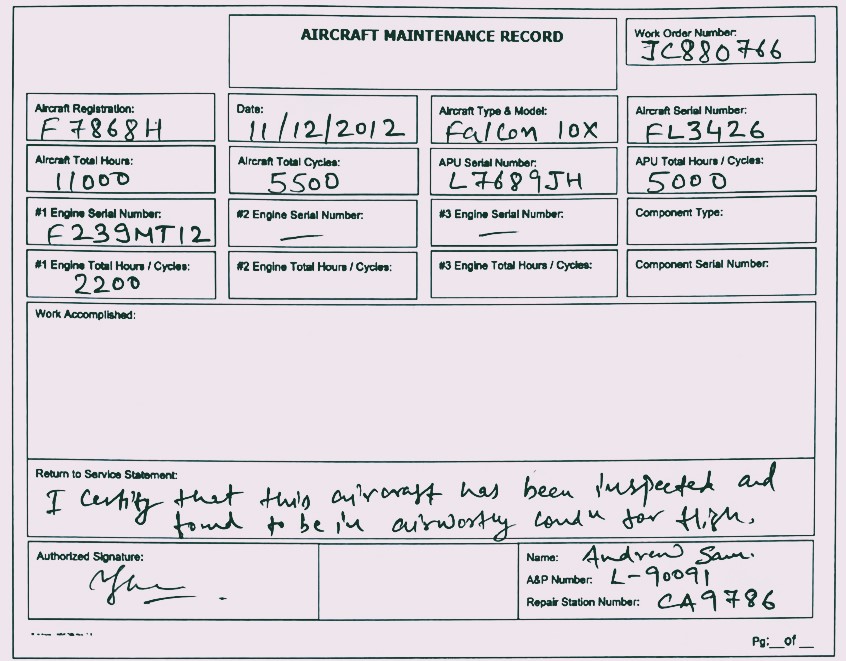 AIRCRAFT MAINTENANCE RECORD
Work Order Number:
JC880766
Aircraft Registration:
F 7868H
Date:
11/12/2012
Aircraft Type & Model:
Falcon 10X
Aircraft Serial Number:
FL3426
Aircraft Total Hours:
11000
Aircraft Total Cycles:
5500
APU Serial Number:
L7689JH
APU Total Hours / Cycles:
5000
#1 Engine Serial Number:
F239MT12
#2 Engine Serial Number:
—
#3 Engine Serial Number:
—
Component Type:
#1 Engine Total Hours / Cycles:
2200
#2 Engine Total Hours / Cycles:
#3 Engine Total Hours / Cycles:
Component Serial Number:
Work Accomplished:
Return to Service Statement:
I certify that this aircraft has been inspected and
found to be in for
Authorized Signature:
Name: Andrew Sam.
A&P Number: L-90091
Repair Station Number: CA9786
Pg:__of __